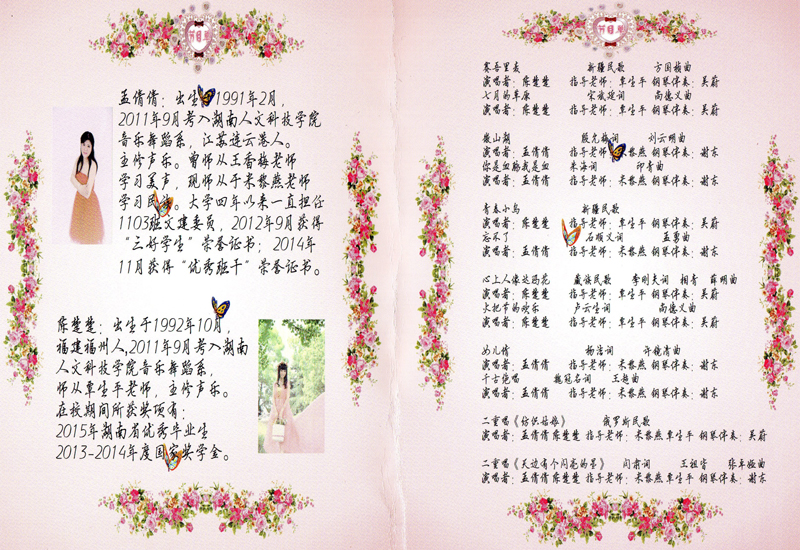 节目单
孟倩倩：出生于1991年2月，
2011年9月考入湖南人文科技学院
音乐舞蹈系，江苏连云港人。
主修声乐。曾师从王香梅老师
学习美声，现师从于米黎燕老师
学习民歌。大学四年以来一直担任
1103班文建委员，2012年9月获得
“三好学生”荣誉证书；2014年
11月获得“优秀班干”荣誉证书。
陈楚楚：出生于1992年10月，
福建福州人,2011年9月考入湖南
人文科技学院音乐舞蹈系，
师从覃生平老师，主修声乐。
在校期间所获奖项有：
2015年湖南省优秀毕业生
2013-2014年度国家奖学金。
节目单
赛吾里麦 新疆民歌 方国桢曲
演唱者：陈楚楚 指导老师：覃生平 钢琴伴奏：吴蔚
七月的草原 宋斌廷词 尚德义曲
演唱者：陈楚楚 指导老师：覃生平 钢琴伴奏：吴蔚
微山湖 殷光梅词 刘云明曲
演唱者：孟倩倩 指导老师：米黎燕 钢琴伴奏：谢东
你是血脉我是血 朱海词 印青曲
演唱者：孟倩倩 指导老师：米黎燕 钢琴伴奏：谢东
青春小鸟 新疆民歌
演唱者：陈楚楚 指导老师：覃生平 钢琴伴奏：吴蔚
忘不了 石顺义词 孟勇曲
演唱者：孟倩倩 指导老师：米黎燕 钢琴伴奏：谢东
心上人像达玛花 藏族民歌 李刚夫词 相青 薛明曲
演唱者：陈楚楚 指导老师：覃生平 钢琴伴奏：吴蔚
火把节的欢乐 卢云生词 尚德义曲
演唱者：陈楚楚 指导老师：覃生平 钢琴伴奏：吴蔚
女儿情 杨洁词 许镜清曲
演唱者：孟倩倩 指导老师：米黎燕 钢琴伴奏：谢东
千古绝唱 魏冠名词 王超曲
演唱者：孟倩倩 指导老师：米黎燕 钢琴伴奏：谢东
二重唱《纺织姑娘》 俄罗斯民歌
演唱者：孟倩倩 陈楚楚 指导老师：米黎燕 覃生平 钢琴伴奏：吴蔚
二重唱《天边有个闪亮的星》 闫肃词 王祖皆 张卓娅曲
演唱者：孟倩倩 陈楚楚 指导老师：米黎燕 覃生平 钢琴伴奏：谢东